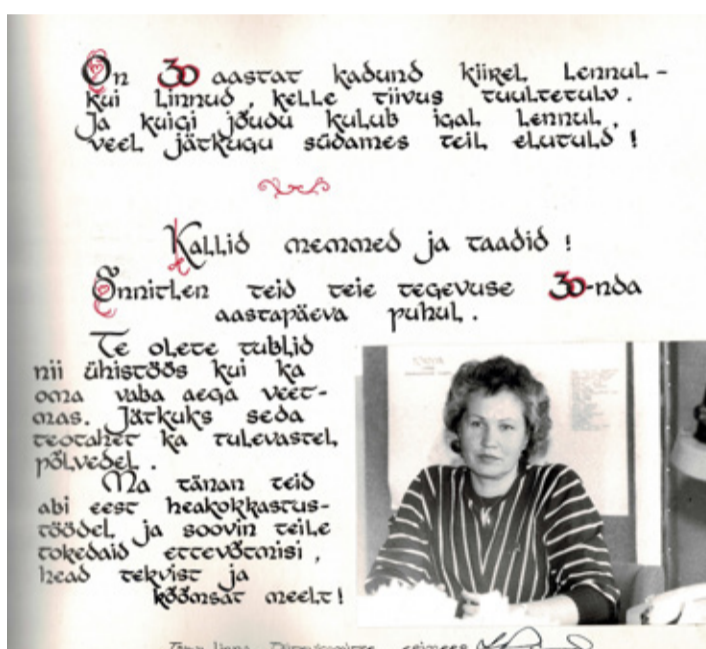 On 30 aastat kadund kiirel lennul -
kui linnud, kelle tiivus tuultetulv.
Ja kuigi jõudu kulub igal lennul,
veel jätkugu südames teil elutuld!
Kallid memmed ja taadid!
Õnnitlen teid teie tegevuse 30-nda
aastapäeva puhul.
Te olete tublid
nii ühistöös kui ka
oma vaba aega veet-
mas. Jätkuks seda
teotahet ka tulevastel
põlvedel.
Ma tänan teid
abi eest heakokkastus-
töödel ja soovin teile
tokedaid ettevõtmisi,
head tekvist ja
kõõmsat meelt!
linna esimees